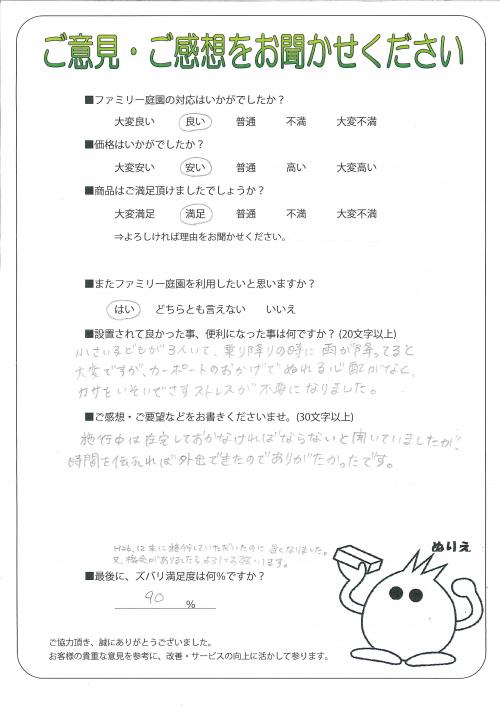 ご意見・ご感想をお聞かせください
■ファミリー庭園の対応はいかがでしたか？
大変良い 良い 普通 不満 大変不満
■価格はいかがでしたか？
大変安い 安い 普通 高い 大変高い
■商品はご満足頂けましたでしょうか？
大変満足 満足 普通 不満 大変不満
⇒よろしければ理由をお聞かせください。
■またファミリー庭園を利用したいと思いますか？
はい どちらとも言えない いいえ
■設置されて良かった事、便利になった事は何ですか？(20文字以上)
小さい子どもが3人いて、乗り降りの時に雨が降ってると
大変ですが、カーポートのおかげでぬれる心配がなく、
カサをいそいでさすストレスが不要になりました。
■ご感想・ご要望などをお書きくださいませ。(30文字以上)
施行中は在宅しておかなければならないと聞いていましたが、
時間を伝えれば外出できたのでありがたかったです。
H26.12 末に施行していただいたのに遅くなりました。
又、機会がありましたらよろしくお願いします。
ぬりえ
■最後に、ズバリ満足度は何％ですか？
90 ％
ご協力頂き、誠にありがとうございました。
お客様の貴重な意見を参考に、改善・サービスの向上に活かして参ります。